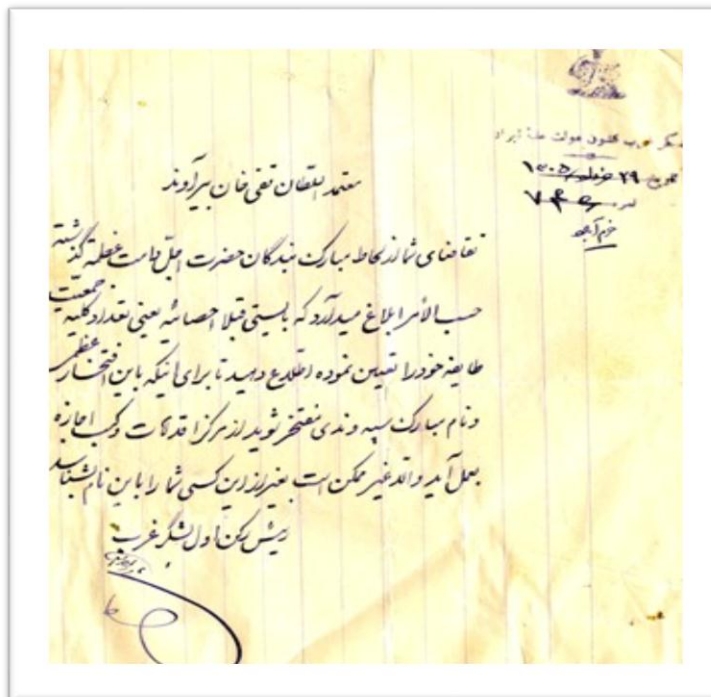 لشکر غرب قشون دولت علیه ایران
مورخه ۲۹ خرداد ۱۳۰۵
نمره ۷۴۵
خرم‌آباد
معتمد السلطان تقی خان بیرآوند
تقاضای شما از لحاظ مبارک بندگان حضرت اجل دامت عظمته گذشته
حسب الامر ابلاغ میدارد که بایستی قبلا احصائیه یعنی تعداد کلیه جمعیت
طایفه خود را تعیین نموده اطلاع دهید تا برای اینکه باین افتخار عظمی
و نام مبارک سپه وندی مفتخر شوید از مرکز اقدامات و کسب اجازه
بعمل آید والا غیر ممکن است بغیر از این کسی شما را باین نام بشناسد
رئیس رکن اول لشگر غرب